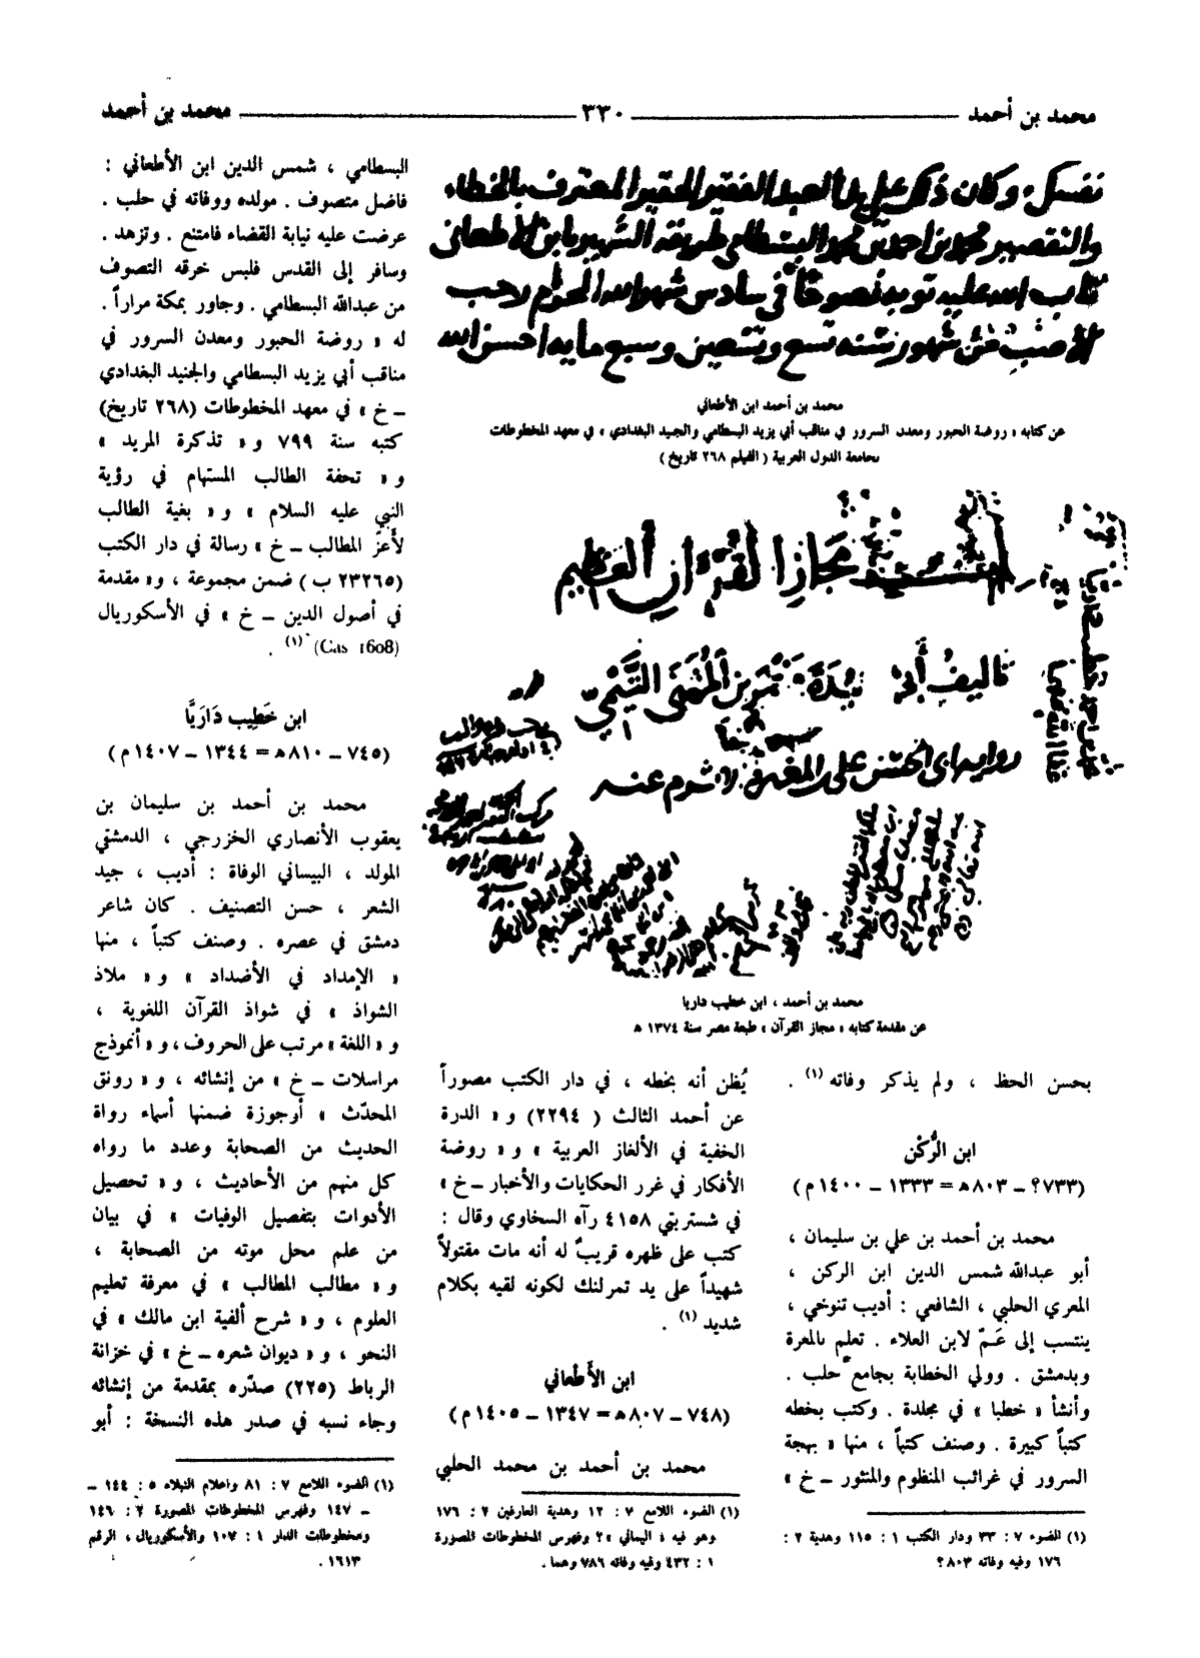 محمد بن أحمد ــــ ٣٣٠ ــــ محمد بن أحمد
نفسك. وكان ذكر على يد العبد الفقير الحقير المعترف بالخطاء
والتقصير محمد بن احمد بن محمد البسطامى طريقة الشهير بابن الاطعانى
تاب الله عليه توبة نصوحًا فى سادس شهر الله الحرام رجب
الاصب من شهور سنة تسع وتسعين وسبع مايه احسن الله
محمد بن أحمد ابن الأطعاني
عن كتابه « روضة الحبور ومعدن السرور في مناقب أبي يزيد البسطامي والجنيد البغدادي » في معهد المخطوطات
بجامعة الدول العربية ( الفيلم ٢٦٨ تاريخ )
مجاز القرآن العظيم
تاليف أبي عبيدة معمر بن المثنى التيمي
على المغيرة الاثرم عنه
محمد بن أحمد ، ابن خطيب داريا
عن مقدمة كتابه « مجاز القرآن » طبعة مصر سنة ١٣٧٤ هـ
بحسن الحظ ، ولم يذكر وفاته (١) .
ابن الرُّكْن
(٧٣٣؟ ــ ٨٠٣هـ = ١٣٣٣ ــ ١٤٠٠م)
محمد بن أحمد بن علي بن سليمان ،
أبو عبدالله شمس الدين ابن الركن ،
المعري الحلبي ، الشافعي : أديب تنوخي ،
ينتسب إلى عَمّ لابن العلاء . تعلم بالمعرة
وبدمشق . وولي الخطابة بجامع حلب .
وأنشأ « خطبا » في مجلدة . وكتب بخطه
كتباً كبيرة . وصنف كتباً ، منها « بهجة
السرور في غرائب المنظوم والمنثور ــ خ »
(١) الضوء ٧ : ٣٣ ودار الكتب ١ : ١١٥ وهدية ٢ :
١٧٦ وفيه وفاته ٨٠٣؟
يُظن أنه بخطه ، في دار الكتب مصوراً
عن أحمد الثالث ( ٢٢٩٤) و « الدرة
الخفية في الألغاز العربية » و « روضة
الأفكار في غرر الحكايات والأخبار ــ خ »
في شستربتي ٤١٥٨ رآه السخاوي وقال :
كتب على ظهره قريبٌ له أنه مات مقتولاً
شهيداً على يد تمرلنك لكونه لقيه بكلام
شديد (١) .
ابن الأَطْعاني
(٧٤٨ ــ ٨٠٧هـ = ١٣٤٧ ــ ١٤٠٥م)
محمد بن أحمد بن محمد الحلبي
(١) الضوء اللامع ٧ : ١٢ وهدية العارفين ٢ : ١٧٦
وهو فيه « اليماني »؟ وفهرس المخطوطات المصورة
١ : ٤٣٢ وفيه وفاته ٧٨٦ وهما .
البسطامي ، شمس الدين ابن الأطعاني :
فاضل متصوف . مولده ووفاته في حلب .
عرضت عليه نيابة القضاء فامتنع . وتزهد .
وسافر إلى القدس فلبس خرقه التصوف
من عبدالله البسطامي . وجاور بمكة مراراً .
له « روضة الحبور ومعدن السرور في
مناقب أبي يزيد البسطامي والجنيد البغدادي
ــ خ » في معهد المخطوطات (٢٦٨ تاريخ)
كتبه سنة ٧٩٩ و « تذكرة المريد »
و « تحفة الطالب المستهام في رؤية
النبي عليه السلام » و « بغية الطالب
لأَعزّ المطالب ــ خ » رسالة في دار الكتب
(٢٣٢٦٥ ب ) ضمن مجموعة ، و« مقدمة
في أصول الدين ــ خ » في الأسكوريال
(Cas 1608) (١) .
ابن خَطِيب دَارَيَّا
(٧٤٥ ــ ٨١٠هـ = ١٣٤٤ ــ ١٤٠٧م )
محمد بن أحمد بن سليمان بن
يعقوب الأنصاري الخزرجي ، الدمشقي
المولد ، البيساني الوفاة : أديب ، جيد
الشعر ، حسن التصنيف . كان شاعر
دمشق في عصره . وصنف كتباً ، منها
« الإمداد في الأضداد » و « ملاذ
الشواذ » في شواذ القرآن اللغوية ،
و « اللغة » مرتب على الحروف ، و « أنموذج
مراسلات ــ خ » من إنشائه ، و « رونق
المحدّث » أوجوزة ضمنها أسماء رواة
الحديث من الصحابة وعدد ما رواه
كل منهم من الأحاديث ، و « تحصيل
الأدوات بتفصيل الوفيات » في بيان
من علم محل موته من الصحابة ،
و « مطالب المطالب » في معرفة تعليم
العلوم ، و « شرح ألفية ابن مالك » في
النحو ، و « ديوان شعره ــ خ » في خزانة
الرباط (٢٢٥) صدّره بمقدمة من إنشائه
وجاء نسبه في صدر هذه النسخة : أبو
(١) الضوء اللامع ٧ : ٨١ واعلام النبلاء ٥ : ١٤٤ ــ
ــ ١٤٧ وفهرس المخطوطات المصورة ٢ : ١٤٦
ومخطوطات الدار ١ : ١٠٧ والأسكوريال ، الرقم
١٦١٣ .